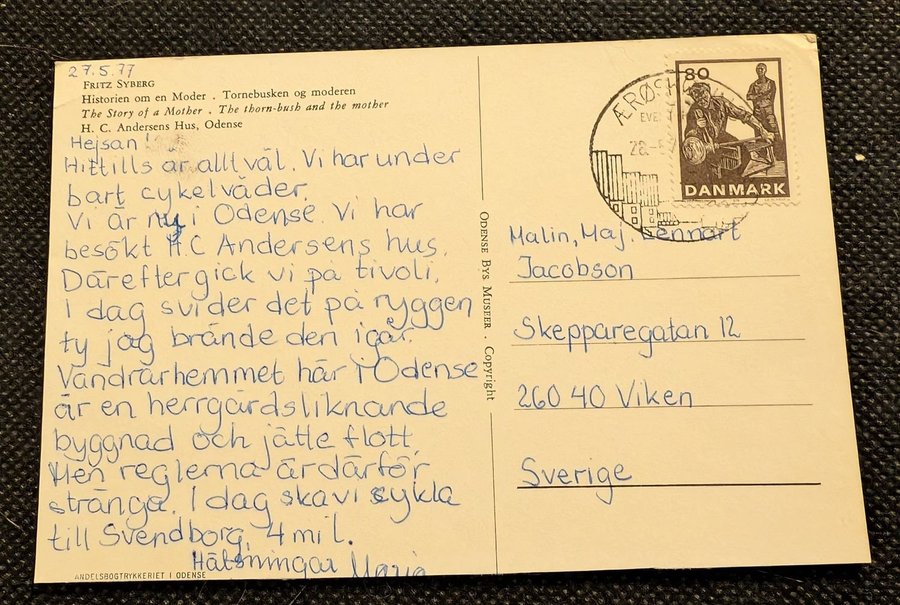 27.5.77
FRITZ SYBERG
Historien om en Moder . Tornebusken og moderen
The Story of a Mother . The thorn-bush and the mother
H. C. Andersens Hus, Odense
Hejsan!
Hittills är allt väl. Vi har under
bart cykelväder.
Vi är nu i Odense. Vi har
besökt H.C Andersens hus.
Därefter gick vi på tivoli.
I dag svider det på ryggen
ty jag brände den igår.
Vandrarhemmet här i Odense
är en herrgårdsliknande
byggnad och jätte flott
Men reglerna är därför
stränga. I dag ska vi cykla
till Svendborg, 4 mil.
Hälsningar Maria
ANDELSBOGTRYKKERIET I ODENSE
ODENSE BYS MUSEER . Copyright
ÆRØSK
28.-5
80
DANMARK
Malin, Maj, Lennart
Jacobson
Skepparegatan 12
260 40 Viken
Sverige